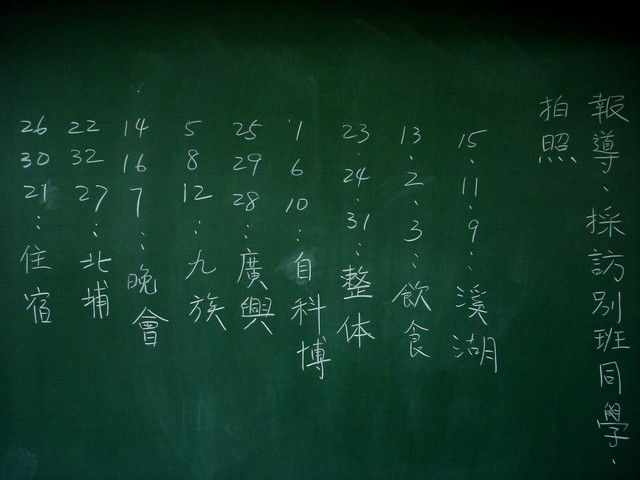 報導、採訪別班同學、
拍照
15、11、9：溪湖
13、2、3：飲食
23、24、31：整体
1 6 10：自科博
25 29 28：廣興
5 8 12：九族
14 16 7：晚會
22 32 27：北埔
26 30 21：住宿